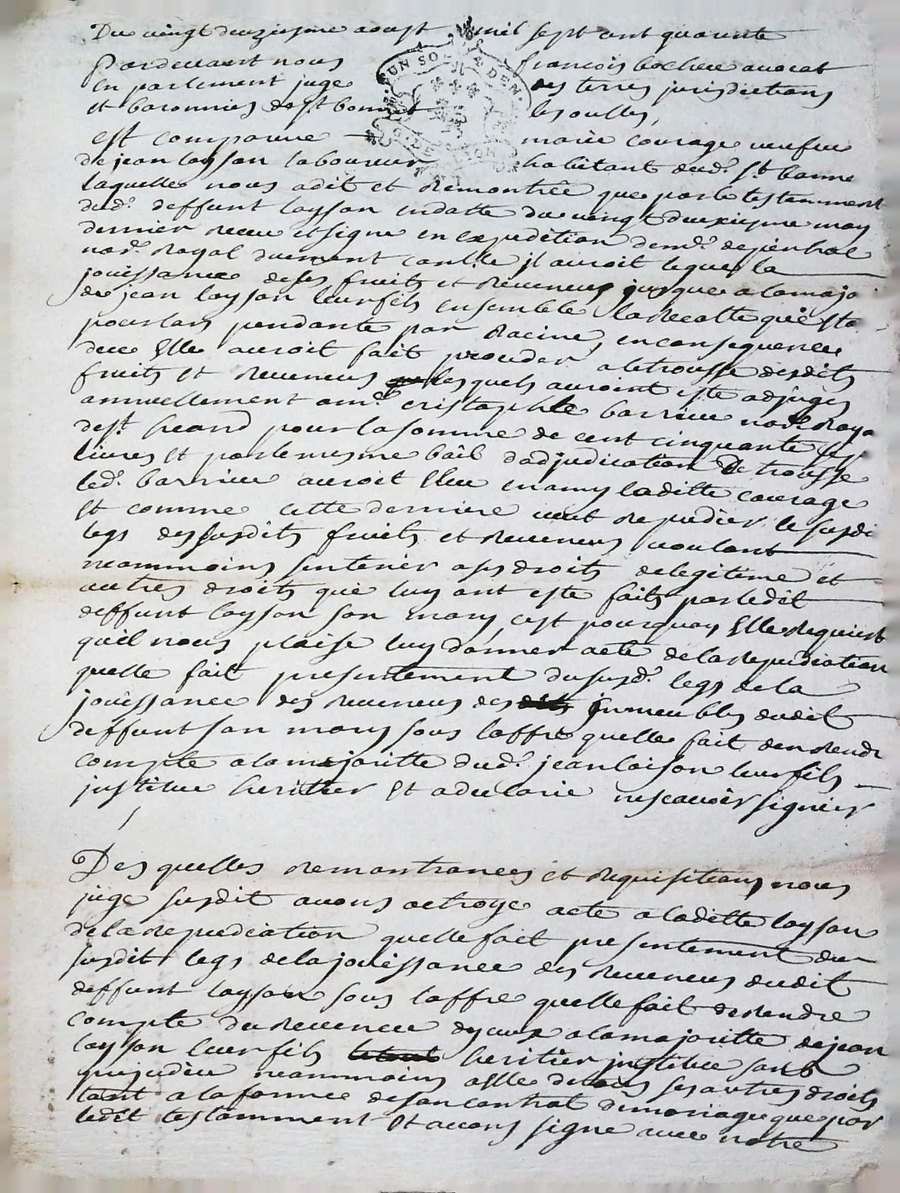 Du vingt deuziesme aoust mil sept cent quarante
Pardevant nous françois bocheu avocat
en parlement juge des terres jurisdictions
et baronnies de st bonnet les oulles,
est comparue marie courage veufve
de jean layson laboureur habitant dud. st bonne
laquelle nous a dit et remontrée que par le testemment
dud. deffunt layson en datte du vingt deuxiesme may
dernier receu et signe en expedition de me. de
nore. Royal duement controlle il auroit legue la
jouissance de ses fruits et reveneus jusque a la majo
de jean layson leur fils ensemble la recolte qui esto
pour lors pendante par racine, en consequence
duce Elle auroit fait proceder a la trousse desdits
fruits et reveneus lesquels auroint este adjugés
annuellement a me. cristophle barrieu nore Roya
de st heand pour la somme de cent cinquante
livres et par le mesme bail d'adjudication de trousse
led. barrieu auroit Eleu en amy laditte courage
Et comme cette derniere veut repudier le susdi
legs desdits fruits et reveneus voulant
neammoins sen tenir a ses droits de legitime et
autres droits que luy ont este faits par ledit
deffunt layson son mary c'est pourquoy Elle requiert
quil nous plaise luy donner acte de la repudiation
quelle fait presentement du susd. legs de la
jouissance des reveneus des immeubles dudit
deffunt son mary sous l'offre quelle fait den rendr
compte a la majoritte dud. jean laison leur fils
justitue heritier Et a declarie ne scavoir signier
Des quelles remontrances et requisitions nous
juge susdit avons octroye acte a laditte layson
de la repudiation quelle fait presentement du
susdit legs de la jouissance des reveneus dudit
deffunt layson sous l'offre quelle fait de rendre
compte du reveneu dyceux a la majoritte de jean
layson leur fils heritier justitue sans
prejudice neammoins a Elle de ses autres droits
tant a la forme de son contrat de mariage que par
ledit testamment Et avons signe avec notre
UN SOL DEN
G. DE LYON